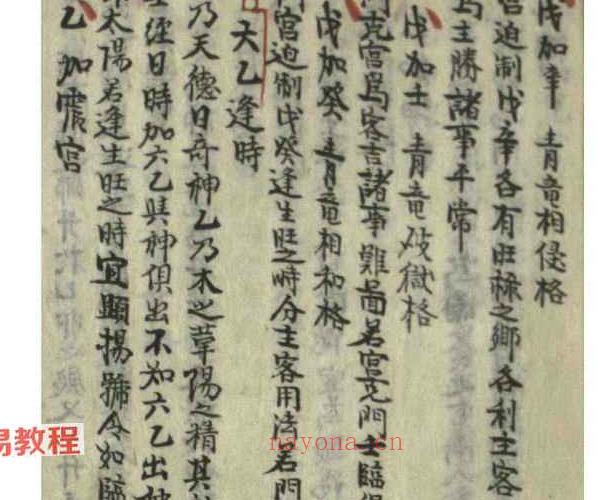 戊加辛 青竜相侵格
宫迫制戊辛各有旺禄之鄉各利主客
爲主勝諸事平常
戊加壬 青竜殁獄格
门克宫爲客吉諸事難啚若宫克門主臨
戊加癸 青竜相和格
宫迫制戊癸逢生旺之時分主客用法若門
天乙逢時
乃天德日奇神乙乃木之草陽之精其
經日時加六乙与神俱出不知六乙出
太陽若逢生旺之時宜顯揚號令如臨
乙加震宫
易教程
nayona.cn